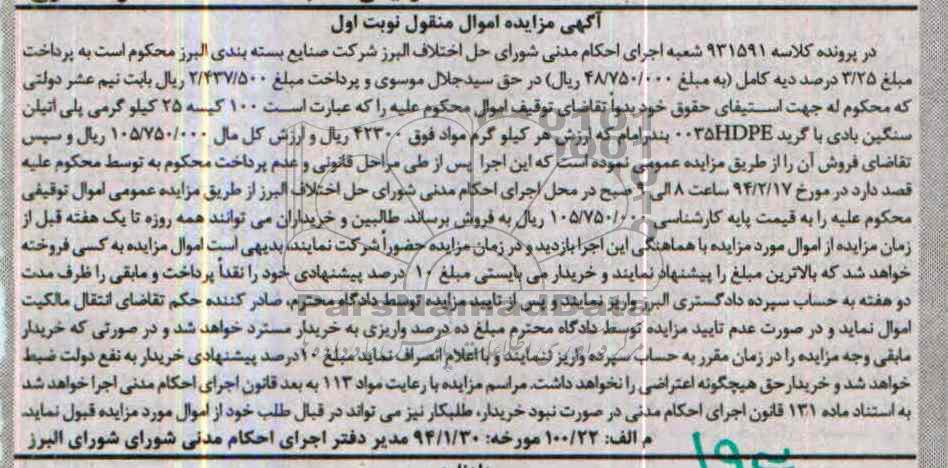 آگهی مزایده اموال منقول نوبت اول
در پرونده کلاسه ۹۳۱۵۹۱ شعبه اجرای احکام مدنی شورای حل اختلاف البرز شرکت صنایع بسته بندی البرز محکوم است به پرداخت
مبلغ ۳/۲۵ درصد دیه کامل (به مبلغ ۴۸/۷۵۰/۰۰۰ ریال) در حق سیدجلال موسوی و پرداخت مبلغ ۲/۴۳۷/۵۰۰ ریال بابت نیم عشر دولتی
که محکوم له جهت استیفای حقوق خود بدواً تقاضای توقیف اموال محکوم علیه را که عبارت است ۱۰۰ کیسه ۲۵ کیلو گرمی پلی اتیلن
سنگین بادی با گرید ۰۰۳۵HDPE بندرامام که ارزش هر کیلو گرم مواد فوق ۴۲۳۰۰ ریال و ارزش کل مال ۱۰۵/۷۵۰/۰۰۰ ریال و سپس
تقاضای فروش آن را از طریق مزایده عمومی نموده است که این اجرا پس از طی مراحل قانونی و عدم پرداخت محکوم به توسط محکوم علیه
قصد دارد در مورخ ۹۴/۲/۱۷ ساعت ۸ الی ۹ صبح در محل اجرای احکام مدنی شورای حل اختلاف البرز از طریق مزایده عمومی اموال توقیفی
محکوم علیه را به قیمت پایه کارشناسی ۱۰۵/۷۵۰/۰۰۰ ریال به فروش برساند. طالبین و خریداران می توانند همه روزه تا یک هفته قبل از
زمان مزایده از اموال مورد مزایده با هماهنگی این اجرا بازدید و در زمان مزایده حضوراً شرکت نمایند، بدیهی است اموال مزایده به کسی فروخته
خواهد شد که بالاترین مبلغ را پیشنهاد نمایند و خریدار می بایستی مبلغ ۱۰ درصد پیشنهادی خود را نقداً پرداخت و مابقی را ظرف مدت
دو هفته به حساب سپرده دادگستری البرز واریز نمایند و پس از تایید مزایده توسط دادگاه محترم، صادر کننده حکم تقاضای انتقال مالکیت
اموال نماید و در صورت عدم تایید مزایده توسط دادگاه محترم مبلغ ده درصد واریزی به خریدار مسترد خواهد شد و در صورتی که خریدار
مابقی وجه مزایده را در زمان مقرر به حساب سپرده واریز ننمایند و یا اعلام انصراف نماید مبلغ ۱۰ درصد پیشنهادی خریدار به نفع دولت ضبط
خواهد شد و خریدار حق هیچگونه اعتراضی را نخواهد داشت. مراسم مزایده با رعایت مواد ۱۱۳ به بعد قانون اجرای احکام مدنی اجرا خواهد شد
به استناد ماده ۱۳۱ قانون اجرای احکام مدنی در صورت نبود خریدار، طلبکار نیز می تواند در قبال طلب خود از اموال مورد مزایده قبول نماید.
م الف: ۱۰۰/۲۲ مورخه: ۹۴/۱/۳۰ مدیر دفتر اجرای احکام مدنی شورای شورای البرز
ParsNamadData